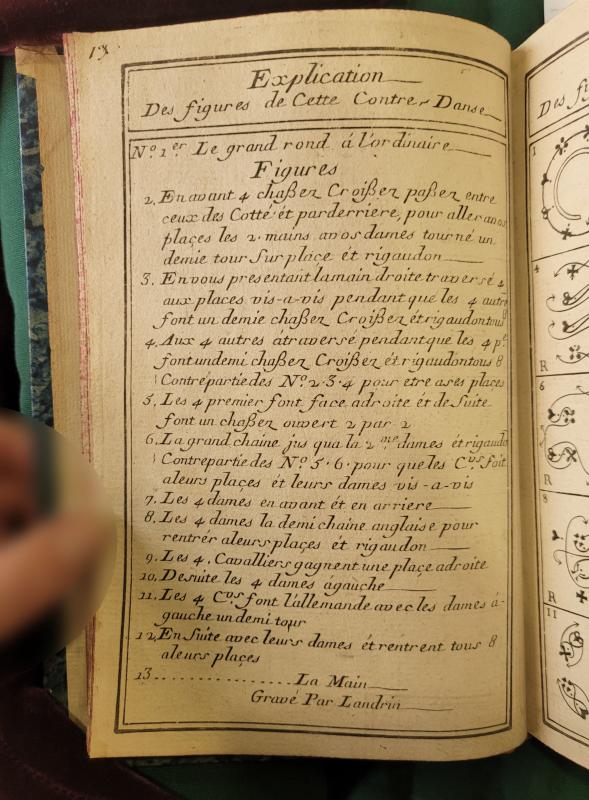 13
Explication
Des figures de Cette Contre-Danse
N.º 1er Le grand rond á l'ordinaire
Figures
2. En avant 4 chaßez Croißez paßez entre
ceux des Cotté et par derriere, pour aller a vos
plaçes les 2. mains a vos dames tourné un
demie tour Sur plaçe ét rigaudon
3. En vous presentant la main droite traversé 4
aux places vis-a-vis pendant que les 4 autre
font un demie chaßez Croißez ét rigaudon tous 8
4. Aux 4 autres á traversé pendant que les 4 pr.
font un demi chaßez Croißez ét rigaudon tous 8
Contrepartie des N.º 2.3.4 pour etre a ses plaçes
5. Les 4 premier font face adroite ét de Suite
font un chaßez ouvert 2 par 2
6. La grand chaine jus qua la 2me dames ét rigaudo
Contrepartie des N.º 5.6. pour que les Crs foit
aleurs plaçes ét leurs dames vis-a-vis
7. Les 4 dames en avant ét en arriere
8. Les 4 dames la demi chaine anglaise pour
rentrér aleurs plaçes ét rigaudon
9. Les 4. Cavalliers gagnent une plaçe adroite
10. De suite les 4 dames ágauche
11. Les 4 Crs font l'allemande avec les dames á-
gauche un demi tour
12. En Suite avec leurs dames ét rentrent tous 8
aleurs plaçes
13. La Main
Gravé Par Landrin
Des fi
1
4
R
6
R
8
R
11